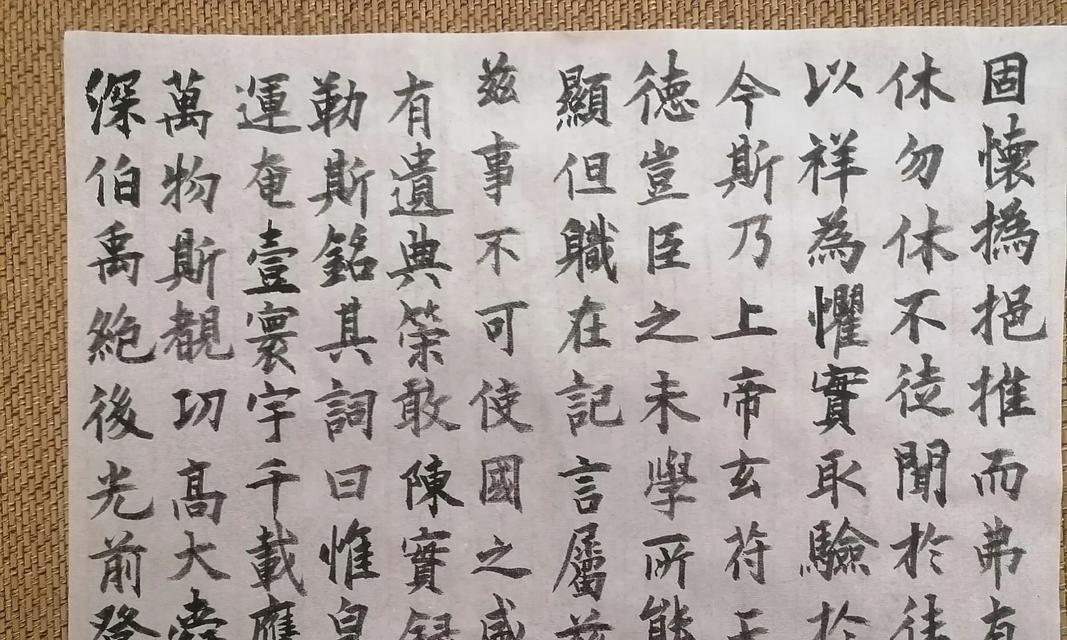 固懷撝挹推而弗有
休勿休不徒聞於往
以祥為懼實取驗於
今斯乃上帝玄符天
德豈臣之末學所能
顯但軄在記言屬茲
茲事不可使國之盛
有遺典策敢陳實録
勒斯銘其詞曰惟皇
運奄壹寰宇千載膺
萬物斯覩功高大舜
深伯禹絶後光前登